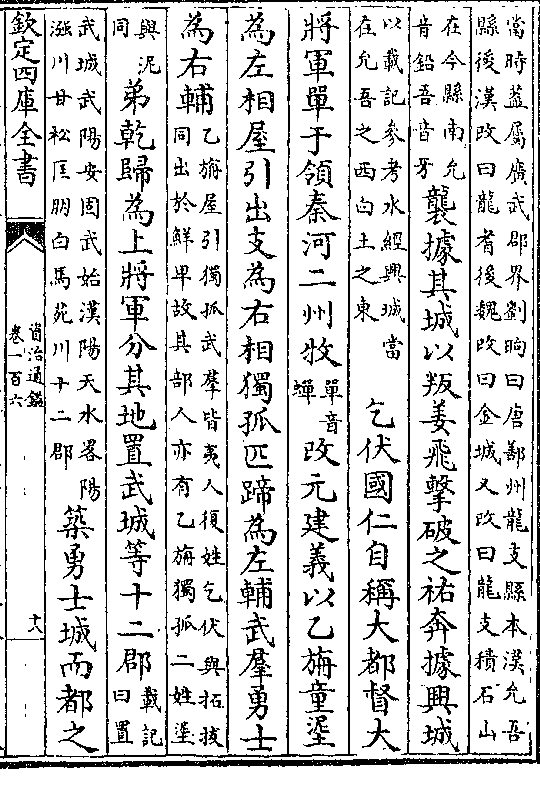 當時蓋屬廣武郡界劉昫曰唐鄯州龍支縣本漢允吾
縣後漢改曰龍耆後魏改曰金城又改曰龍支積石山
在今縣南允
音鉛吾音牙
襲據其城以叛姜飛擊破之祐奔據興城
以載記參考水經興城當
在允吾之西白土之東
乞伏國仁自稱大都督大
將軍單于領秦河二州牧
單音
蟬
改元建義以乙旃童埿
為左相屋引出支為右相獨孤匹蹄為左輔武羣勇士
為右輔
乙旃屋引獨孤武羣皆夷人復姓乞伏與拓拔
同出於鮮卑故其部人亦有乙旃獨孤二姓埿
與泥
同
弟乾歸為上將軍分其地置武城等十二郡
載記
曰置
武城武陽安固武始漢陽天水畧陽
漒川甘松匡朋白馬苑川十二郡
築勇士城而都之
欽定四庫全書
資治通鑑
卷一百六
十八